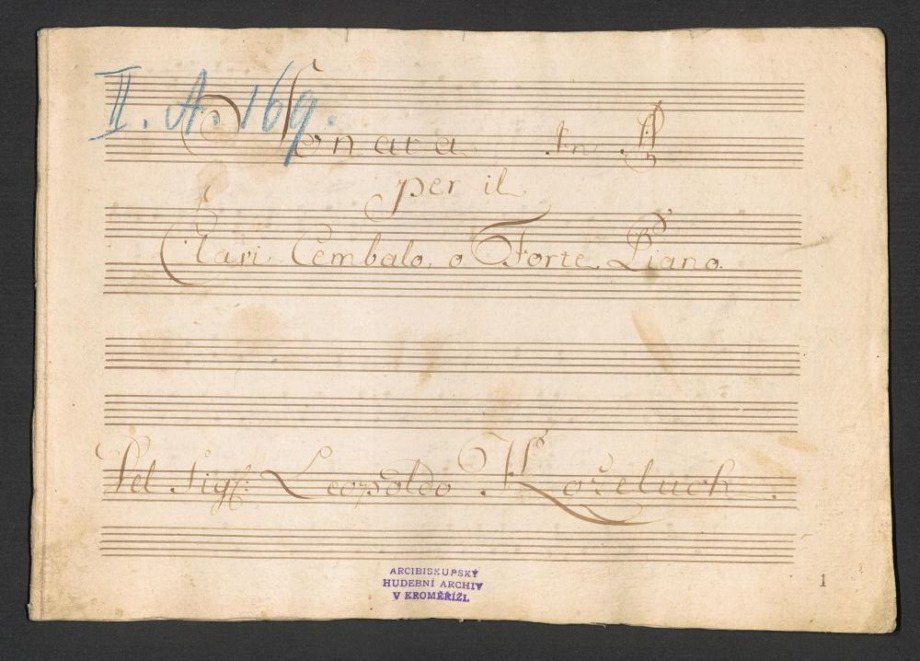 II. A. 169.
Sonata In
per il
Clavi Cembalo, o Forte Piano.
Del Sigr: Leopoldo Koželuch.
ARCIBISKUPSKÝ
HUDEBNÍ ARCHIV
V KROMĚŘÍŽI.
1